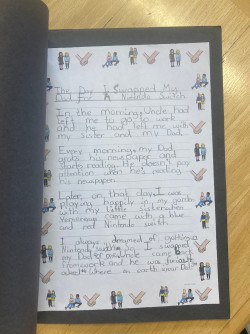 The Day I Swapped My
Dad For A Nintendo Switch
In the morning, Uncle had
left me to go to work
and he had left me with
my sister and my Dad.
Every morning, my Dad
grabs his newspaper and
starts reading. He doesn't pay
attention when he's reading
his newspaper.
Later on that day, I was
playing happily in my garden
with my little sister when
came with a blue
and red Nintendo switch.
I always dreamed of getting a
Nintendo switch so I swapped
my Dad. Uncle came
from work and he was
asked "Where on earth is your Dad?"